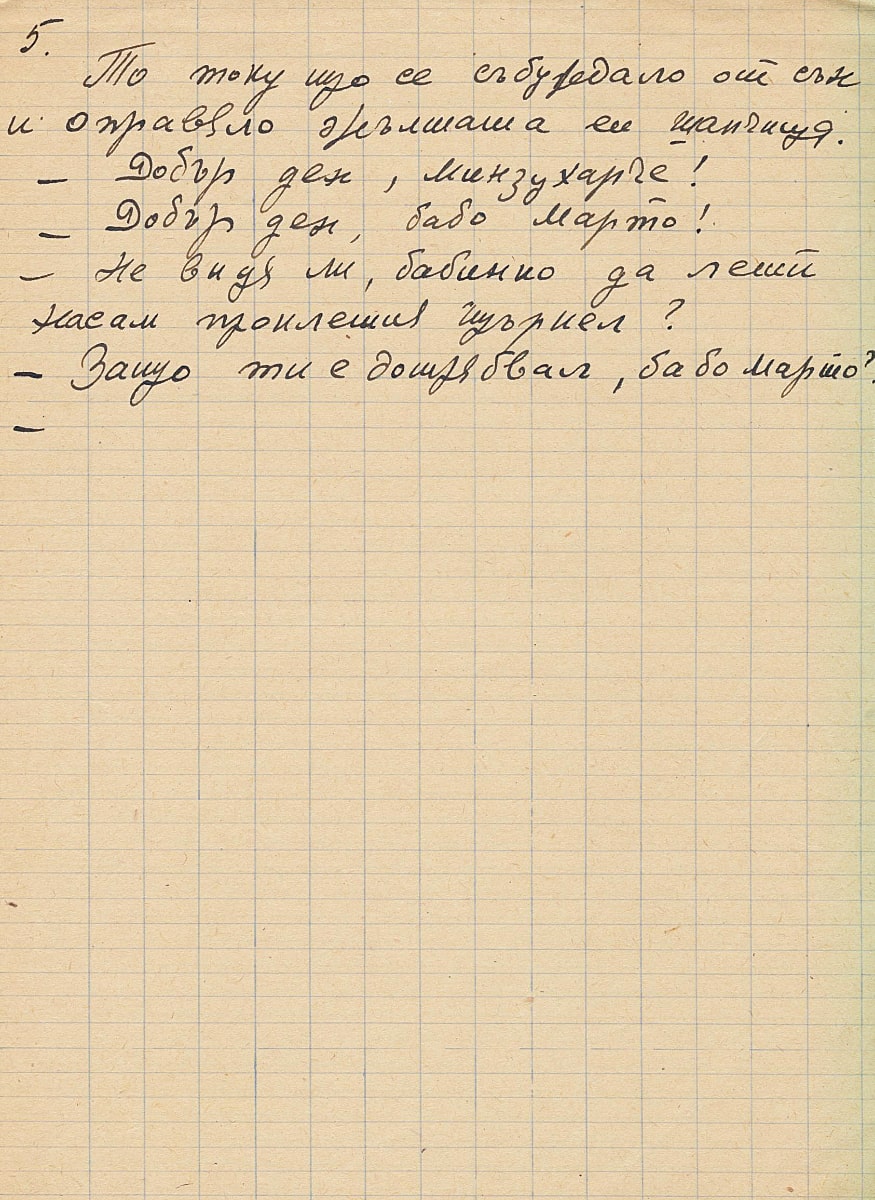 5.
То току що се събуждало от сън
и оправяло жълтата си шапчица.
– Добър ден, минзухарче!
– Добър ден, бабо Марто!
– Не видя ли, бабинко да лети
насам проклетия щъркел?
– Защо ти е дотрябвал, бабо Марто?
–